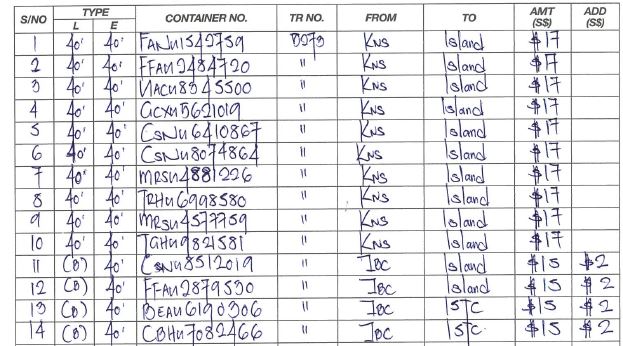 S/NO TYPE CONTAINER NO. TR NO. FROM TO AMT (S$) ADD (S$)
L E
1 40' 40' FANU1542759 KNS Island $17
2 40' 40' FFAU2484720 " KNS Island $17
3 40' 40' UACU8345500 " KNS Island $17
4 40' 40' GCXU5621019 " KNS Island $17
5 40' 40' CSNU6410867 " KNS Island $17
6 40' 40' CSNU8074864 " KNS Island $17
7 40' 40' MRSU4881226 " KNS Island $17
8 40' 40' TRHU6998580 " KNS Island $17
9 40' 40' MRSU4577759 " KNS Island $17
10 40' 40' TGHU9821581 " KNS Island $17
11 (B) 40' CSNU8512019 " IBC Island $15 $2
12 (B) 40' FFAU2879530 " IBC Island $15 $2
13 (B) 40' BEAU6190306 " IBC ISTC $15 $2
14 (B) 40' CBHU7082466 " IBC ISTC $15 $2